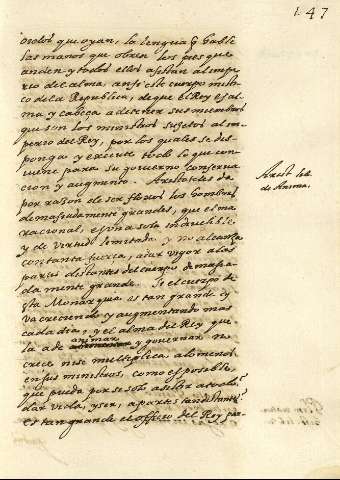 147
oydos que oyan, la lengua q̃ hable
las manos que obren los pies que
anden y todos ellos asistan al impe
rio del alma, assi este cuerpo misti
co de la Republica, de que el Rey es al
ma y cabeça a de tener sus miembros
que son los ministros sujetos al im
perio del Rey, por los quales se dis
ponga y execute todo lo que con
uiene para su gouierno conserua
cion y augmento. Aristoteles da
por razon de ser flacos los hombres
demasiadamente grandes, que el ma
racional, es una sola indiuisible
y de virtud limitada y no alcança
con tanta fuerça, a dar vigor a las
partes distantes del cuerpo demasia
damente grande. Si el cuerpo de
esta Monarquia es tan grande y
va creciendo y augmentando mas
cada dia, y el alma del Rey que
la a de animar y gouernar no
crece ni se multiplica alomenos
en sus ministros, como es posible
que pueda por si solo asistir a todo
dar vida, y ser, a partes tan distantes?
es tan grande el officio del Rey
Arist lib
de Anima.